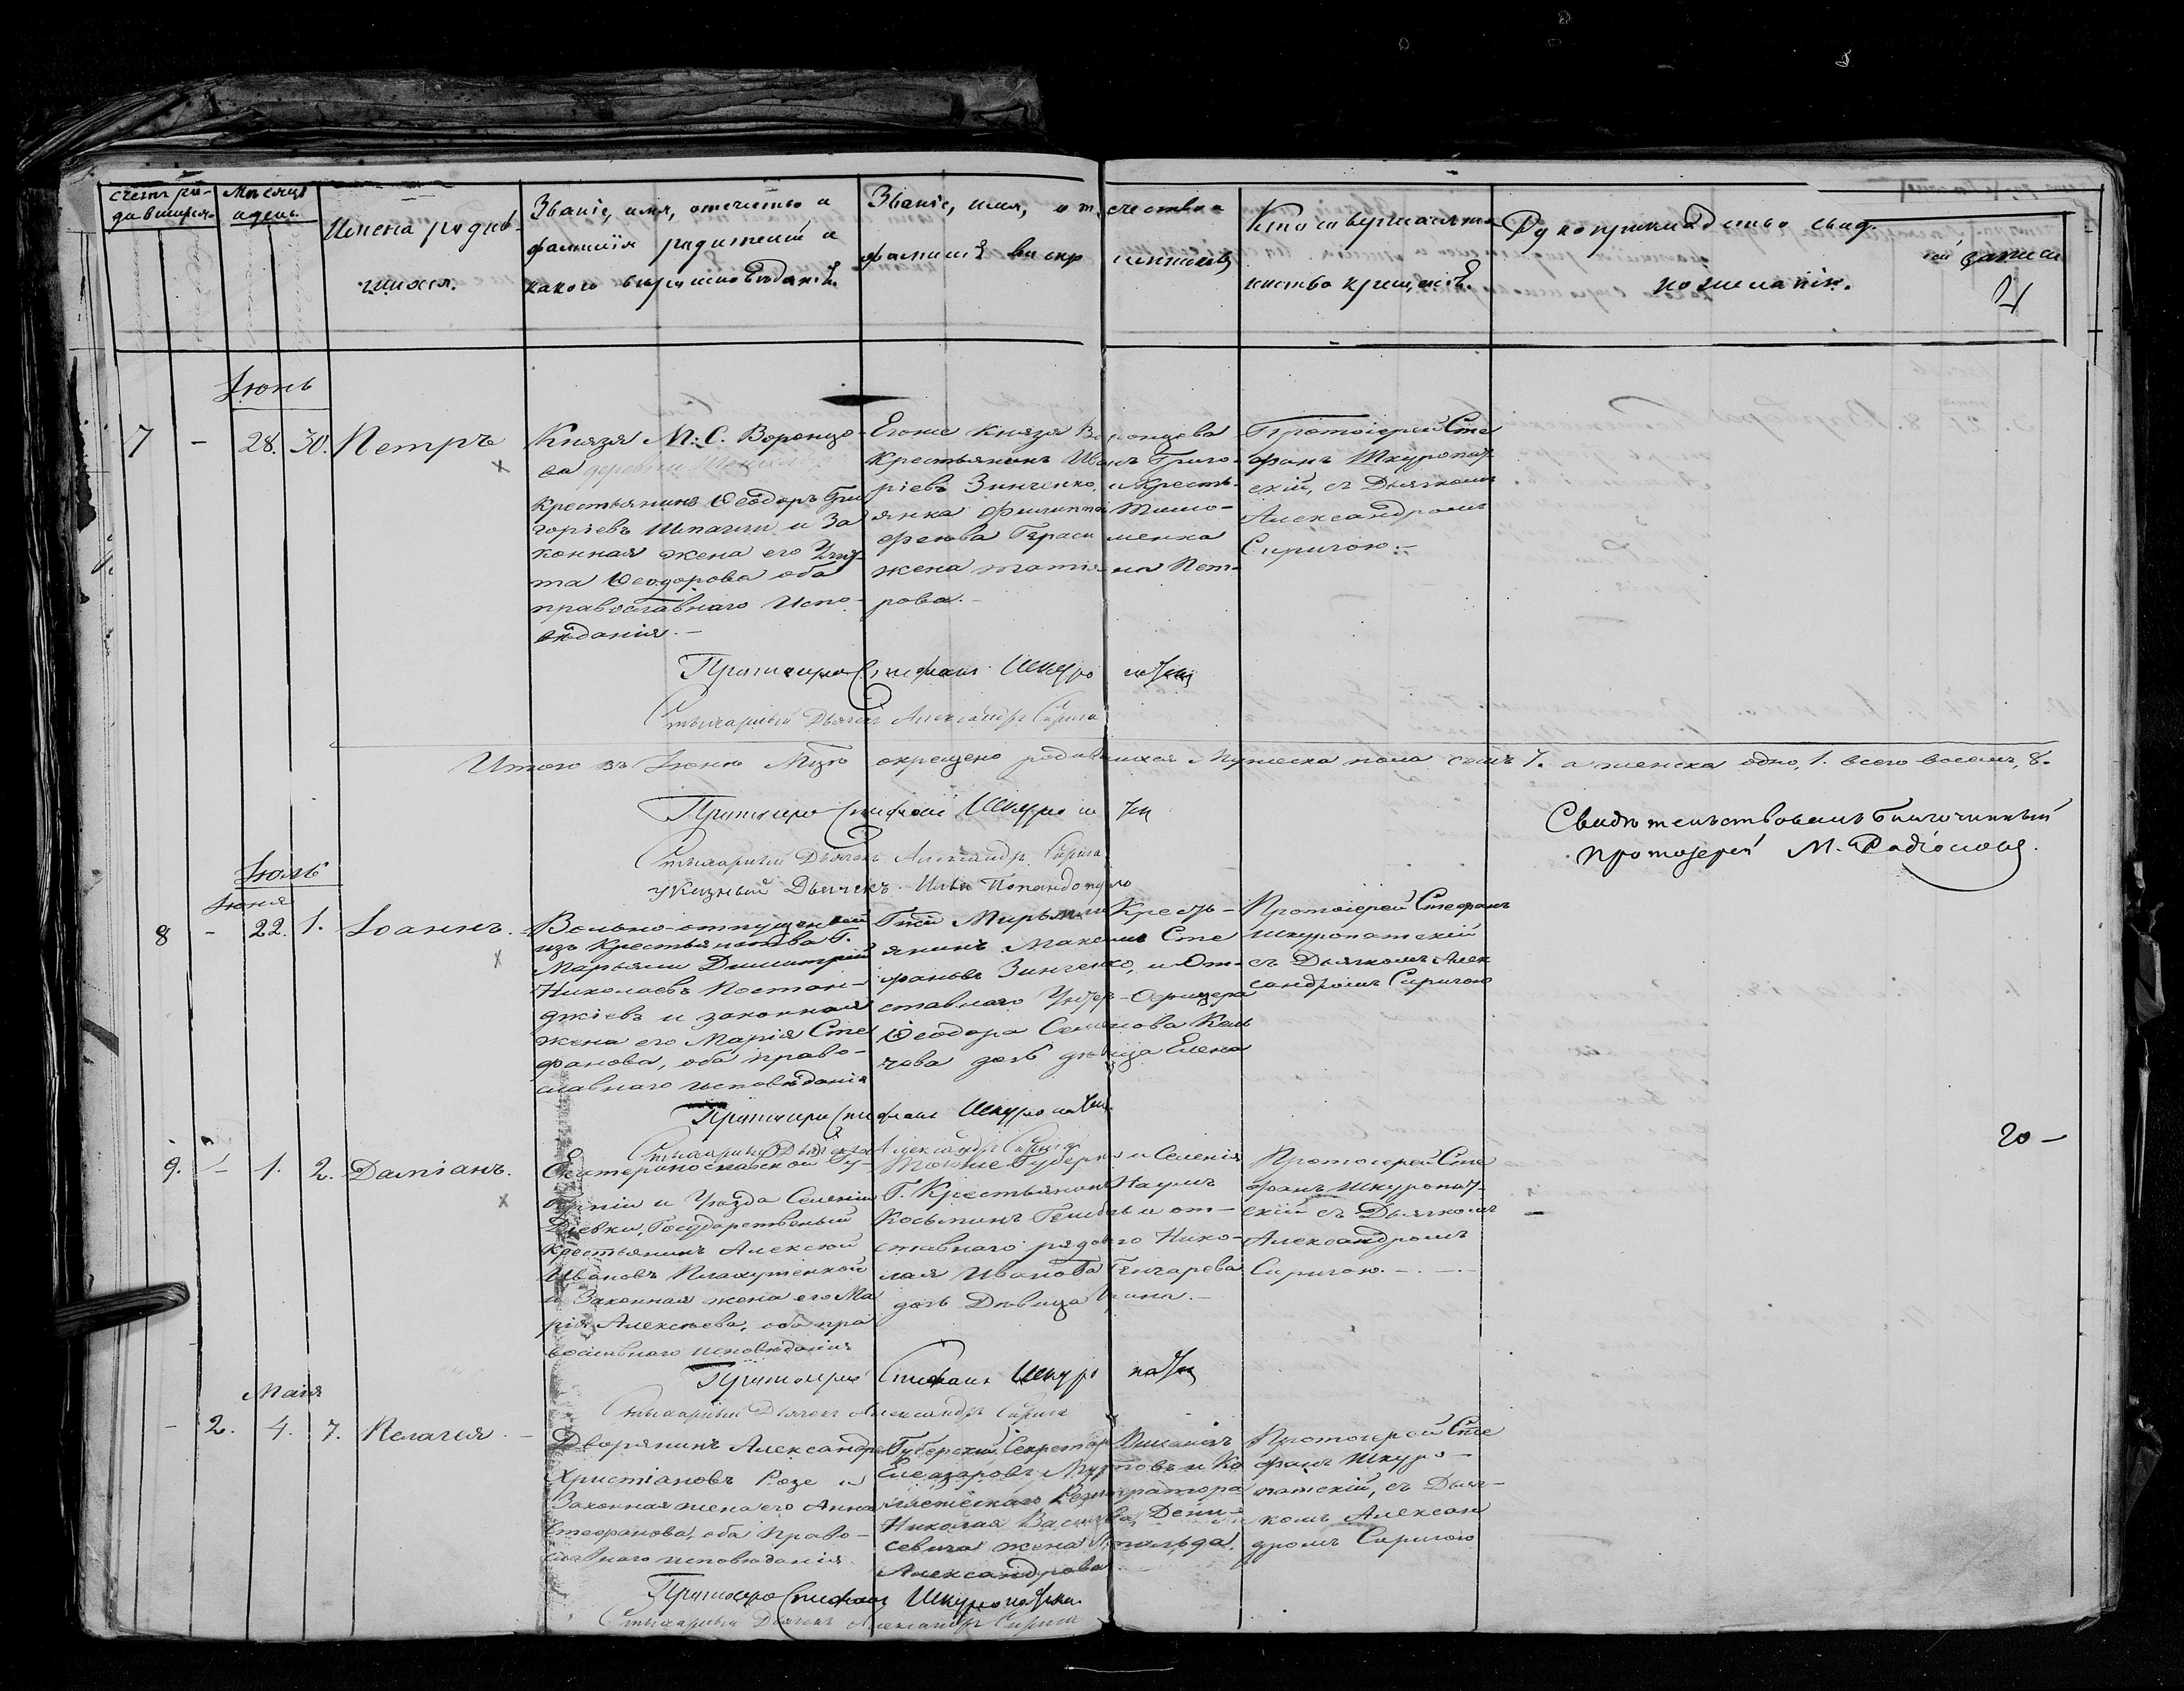 Счетъ ро-
дившихся.
Мѣсяцъ
и день.
Имена родив-
шихся.
Званіе, имя, отчество и
фамилія родителей и
какого вѣроисповѣданія.
Званіе, имя, отчество и
фамилія воспріемниковъ
Кто совершалъ та-
инство крещенія.
Рукоприкладство свид.
записи
по желанію.
4
Іюнь
7 - 28. 30. Петръ
Князя М: С. Воронцо-
ва деревни
Крестьянинъ Ѳеодоръ Гри
горіевъ Шпачъ и За
конная жена его
Ѳеодорова оба
православнаго Испо-
вѣданія.-
Егоже Князя Воронцова
Крестьянинъ Иванъ Григо-
ріевъ Зинченко, и Кресть-
янка Филиппа Тимо-
феева Герасименка
жена Татіана Пет-
рова.-
Протоіерей Сте
фанъ Шкуропат
скій, съ Дьячкомъ
Александромъ
Сиригою.-
Протоіерей Стефанъ Шкуропатскій
Стихарный Дьячекъ Александръ Сирига
Итого въ Іюнѣ Мцѣ окрещено родившихся Мужеска пола семь 7. а женска одно, 1. всего восемь, 8.
Протоіерей Стефанъ Шкуропатскій
Стихарный Дьячекъ Александръ Сирига
Указный Дьячекъ Илья Попандопуло
Свидѣтельствовалъ Благочинный
Протоіерей М. Родіоновъ.
Іюль
Іюня
8 - 22. 1. Іоаннъ.
Вольно-отпущенный
изъ Крестьянства Г.
Марьяли Димитрій
Николаевъ Постан-
джіевъ и законная
жена его Марія Сте
фанова, оба право-
славнаго исповѣданія
Гжи Марьяли Кресть-
янинъ Максимъ Сте
фановъ Зинченко, и От-
ставнаго Унтер-Офицера
Ѳеодора Семенова
чова дочь дѣвица Елена
Протоіерей Стефанъ
Шкуропатскій
съ Дьячкомъ Алек
сандромъ Сиригою
Протоіерей Стефанъ Шкуропатскій
Стихарный Дьячекъ Александръ Сирига
20 -
9. - 1. 2. Даміанъ.
Екатеринославской Гу-
берніи и Уѣзда Селенія
Діевки, Государственый
Крестьянинъ Алексій
Ивановъ Плахутенкой
и Законная жена его Ма
рія Алексѣева, оба пра
вославнаго исповѣданія
Тойже Губерніи и Селенія
Г. Крестьянинъ Наумъ
Косьминъ и от-
ставнаго рядового Нико-
лая Иванова Гончарева
дочь Дѣвица
Протоіерей Сте
фанъ Шкуропат-
скій съ Дьячкомъ
Александромъ
Сиригою.-
Протоіерей Стефанъ Шкуропатскій
Стихарный Дьячекъ Александръ Сирига
Маія
- 2. 4. 7. Пелагея.
Дворянинъ Александръ
Христіановъ Розе и
Законная жена его Анна
Стефанова, оба Право-
славнаго исповѣданія
Губерскій Секретарь
Елеазаровъ и Ко
лежскаго Регистратора
Николая Васильева Дени-
севича жена
Александрова
Протоіерей Сте
фанъ Шкуро-
патскій, съ Дьяч-
комъ Алексан
дромъ Сиригою
Протоіерей Стефанъ Шкуропатскій
Стихарный Дьячекъ Александръ Сирига